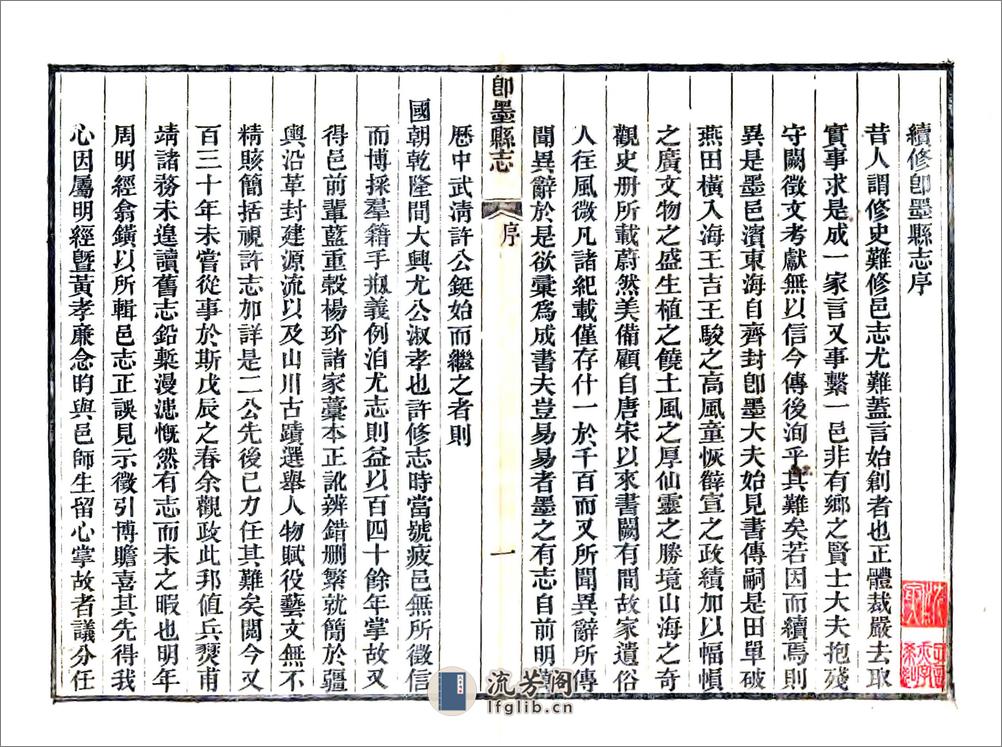 續修卽墨縣志序
昔人謂修史難修邑志尤難蓋言始創者也正體裁嚴去取
實事求是成一家言又事繫一邑非有鄉之賢士大夫抱殘
守闕徵文考獻無以信今傳後洵乎其難矣若因而續焉則
異是墨邑濱東海自齊封卽墨大夫始見書傳嗣是田單破
燕田橫入海王吉王駿之高風童恢薛宣之政績加以幅幀
之廣文物之盛生植之饒土風之厚仙靈之勝境山海之奇
觀史册所載蔚然美備顧自唐宋以來書闕有間故家遺俗
人往風微凡諸紀載僅存什一於千百而又所聞異辭所傳
聞異辭於是欲彙爲成書夫豈易易者墨之有志自前明萬
歷中武淸許公鋌始而繼之者則
卽墨縣志
序
一
國朝乾隆間大興尤公淑孝也許修志時當號疲邑無所徵信
而博採羣籍手剏義例洎尤志則益以百四十餘年掌故又
得邑前輩藍重穀楊玠諸家藁本正訛辨錯删繁就簡於疆
輿沿革封建源流以及山川古蹟選舉人物賦役藝文無不
精賅簡括視許志加詳是二公先後已力任其難矣閱今又
百三十年未嘗從事於斯戊辰之春余觀政此邦値兵燹甫
靖諸務未遑讀舊志鉛槧漫漶慨然有志而未之暇也明年
周明經翕鐄以所輯邑志正誤見示徵引博贍喜其先得我
心因屬明經曁黃孝廉念昀與邑師生留心掌故者議分任
流芳阁
lfglib.cn